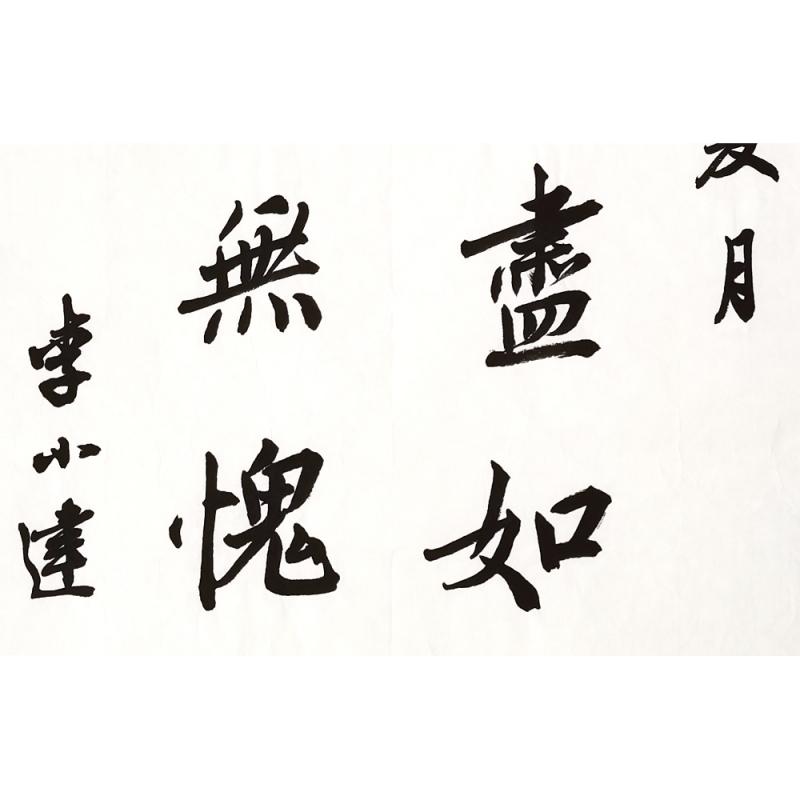 月
盡如
無愧
李小達